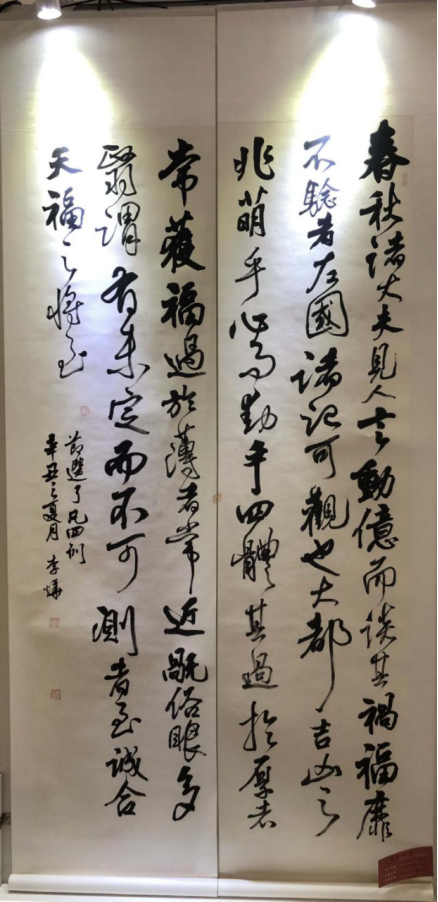 春秋諸大夫見人言動億而談其禍福靡
不驗者左國諸記可觀也大都吉凶之
兆萌乎心而動乎四體其過於厚者
常獲福過於薄者常近禍俗眼多
翳謂有未定而不可測者至誠合
天福之將至
節選了凡四訓
辛丑之夏月 李